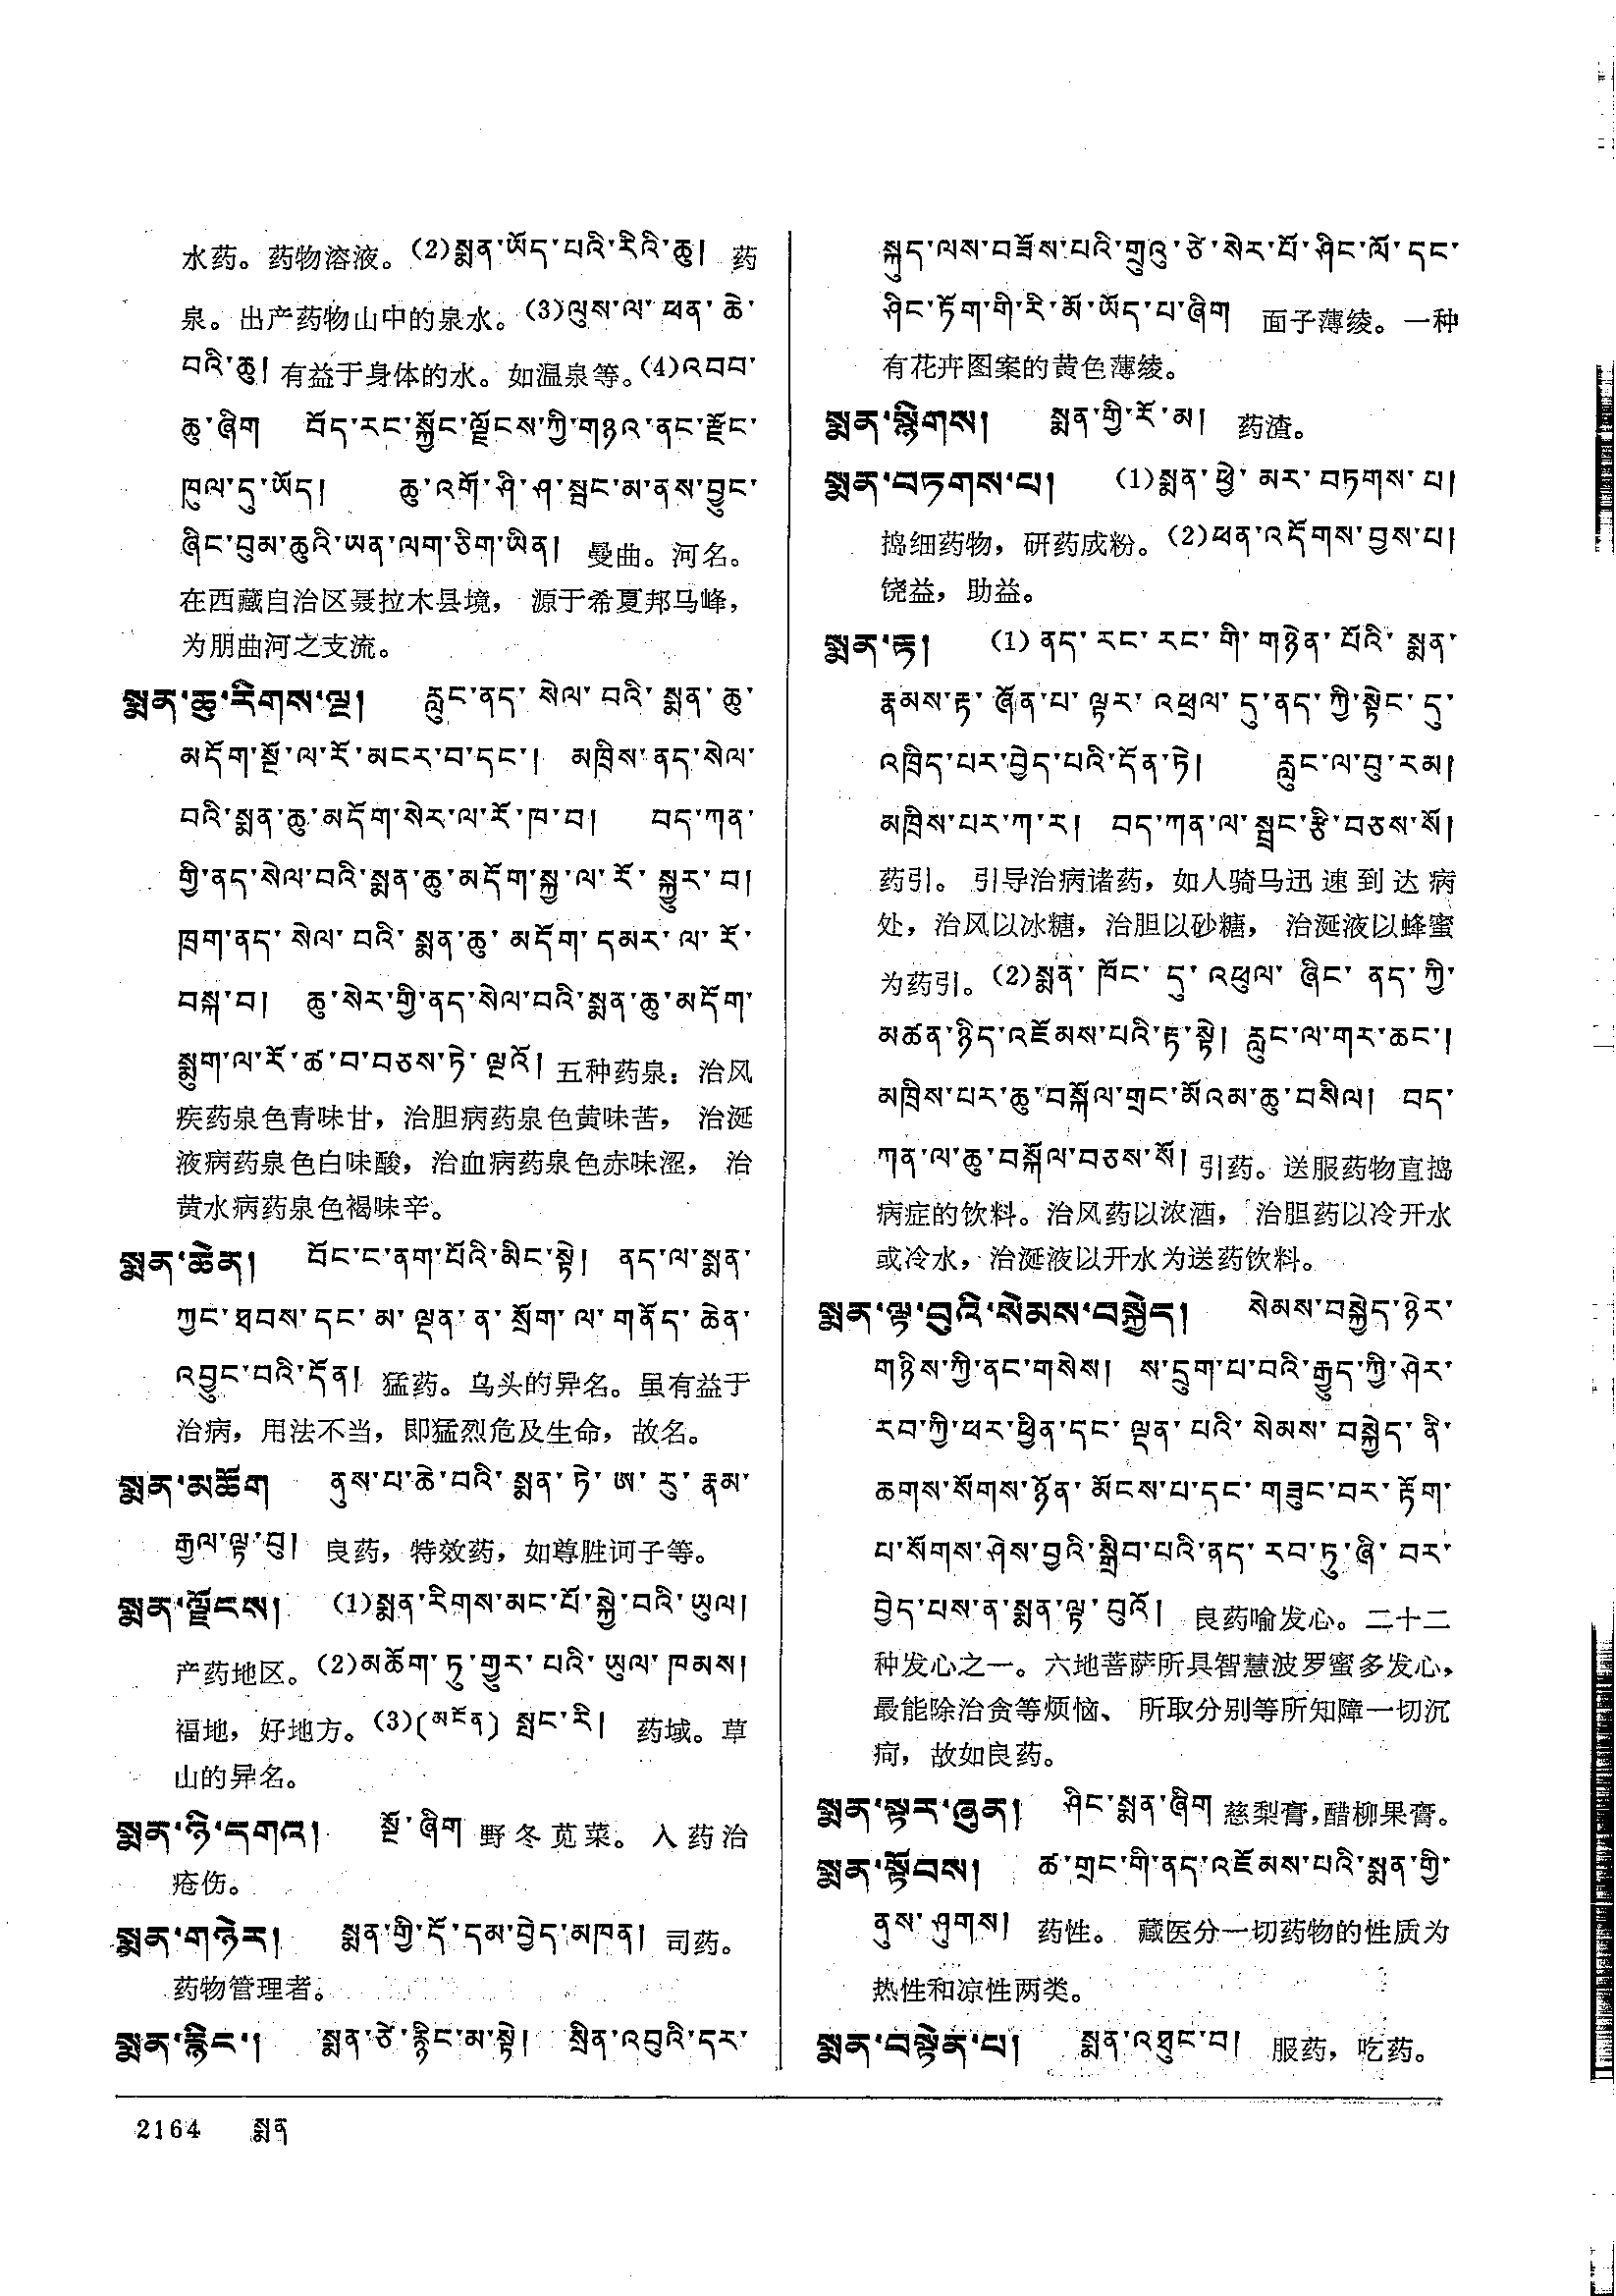 水药。药物溶液。(2)སྨན་ཡོད་པའི་རིའི་ཆུ། 药
泉。出产药物山中的泉水。(3)ལུས་ལ་ཕན་ཆེ་
བའི་ཆུ། 有益于身体的水。如温泉等。(4)འབབ་
ཆུ་ཞིག བོད་རང་སྐྱོང་ལྗོངས་ཀྱི་གཉའ་ནང་རྫོང་
ཁུལ་དུ་ཡོད། ཆུ་འགོ་ཤི་ཤ་སྦང་མ་ནས་བྱུང་
ཞིང་བུམ་ཆུའི་ཡན་ལག་ཅིག་ཡིན། 曼曲。河名。
在西藏自治区聂拉木县境，源于希夏邦马峰，
为朋曲河之支流。
སྨན་ཆུ་རིགས་ལྔ། རླུང་ནད་སེལ་བའི་སྨན་ཆུ་
མདོག་སྔོ་ལ་རོ་མངར་བ་དང་། མཁྲིས་ནད་སེལ་
བའི་སྨན་ཆུ་མདོག་སེར་ལ་རོ་ཁ་བ། བད་ཀན་
གྱི་ནད་སེལ་བའི་སྨན་ཆུ་མདོག་སྐྱ་ལ་རོ་སྐྱུར་བ།
ཁྲག་ནད་སེལ་བའི་སྨན་ཆུ་མདོག་དམར་ལ་རོ་
བསྐ་བ། ཆུ་སེར་གྱི་ནད་སེལ་བའི་སྨན་ཆུ་མདོག་
སྨུག་ལ་རོ་ཚ་བ་བཅས་ཏེ་ལྔའོ། 五种药泉：治风
疾药泉色青味甘，治胆病药泉色黄味苦，治涎
液病药泉色白味酸，治血病药泉色赤味涩，治
黄水病药泉色褐味辛。
སྨན་ཆེན། བོང་ང་ནག་པོའི་མིང་སྟེ། ནད་ལ་སྨན་
ཀྱང་ཐབས་དང་མ་ལྡན་ན་སྲོག་ལ་གནོད་ཆེན་
འབྱུང་བའི་དོན། 猛药。乌头的异名。虽有益于
治病，用法不当，即猛烈危及生命，故名。
སྨན་མཆོག ནུས་པ་ཆེ་བའི་སྨན་ཏེ་ཨ་རུ་རྣམ་
རྒྱལ་ལྟ་བུ། 良药，特效药，如尊胜诃子等。
སྨན་ལྗོངས། (1)སྨན་རིགས་མང་པོ་སྐྱེ་བའི་ཡུལ།
产药地区。(2)མཆོག་ཏུ་གྱུར་པའི་ཡུལ་ཁམས།
福地，好地方。(3)(མངོན) སྤང་རི། 药域。草
山的异名。
སྨན་ཉི་དགའ། སྔོ་ཞིག 野冬苋菜。入药治
疮伤。
སྨན་གཉེར། སྨན་གྱི་དོ་དམ་བྱེད་མཁན། 司药。
药物管理者。
སྨན་རྙིང་། སྨན་ཙེ་རྙིང་མ་སྟེ། སྲིན་འབུའི་དར་
སྐུད་ལས་བཟོས་པའི་གྲུའུ་ཙེ་སེར་པོ་ཤིང་ལོ་དང་
ཤིང་ཏོག་གི་རི་མོ་ཡོད་པ་ཞིག 面子薄绫。一种
有花卉图案的黄色薄绫。
སྨན་སྙིགས། སྨན་གྱི་རོ་མ། 药渣。
སྨན་བཏགས་པ། (1)སྨན་ཕྱེ་མར་བཏགས་པ།
捣细药物，研药成粉。(2)ཕན་འདོགས་བྱས་པ།
饶益，助益。
སྨན་རྟ། (1)ནད་རང་རང་གི་གཉེན་པོའི་སྨན་
རྣམས་རྟ་ཞོན་པ་ལྟར་འཕྲལ་དུ་ནད་ཀྱི་སྟེང་དུ་
འཁྲིད་པར་བྱེད་པའི་དོན་ཏེ། རླུང་ལ་བུ་རམ།
མཁྲིས་པར་ཀ་ར། བད་ཀན་ལ་སྦྲང་རྩི་བཅས་སོ།
药引。引导治病诸药，如人骑马迅速到达病
处，治风以冰糖，治胆以砂糖，治涎液以蜂蜜
为药引。(2)སྨན་ཁོང་དུ་འཕུལ་ཞིང་ནད་ཀྱི་
མཚན་ཉིད་འཇོམས་པའི་རྟ་སྟེ། རླུང་ལ་གར་ཆང་།
མཁྲིས་པར་ཆུ་བསྐོལ་གྲང་མོའམ་ཆུ་བསིལ། བད་
ཀན་ལ་ཆུ་བསྐོལ་བཅས་སོ། 引药。送服药物直捣
病症的饮料。治风药以浓酒，治胆药以冷开水
或冷水，治涎液以开水为送药饮料。
སྨན་ལྟ་བུའི་སེམས་བསྐྱེད། སེམས་བསྐྱེད་ཉེར་
གཉིས་ཀྱི་ནང་གསེས། ས་དྲུག་པ་བའི་རྒྱུད་ཀྱི་ཤེར་
རབ་ཀྱི་ཕར་ཕྱིན་དང་ལྡན་པའི་སེམས་བསྐྱེད་ནི་
ཆགས་སོགས་ཉོན་མོངས་པ་དང་གཟུང་བར་རྟོག་
པ་སོགས་ཤེས་བྱའི་སྒྲིབ་པའི་ནད་རབ་ཏུ་ཞི་བར་
བྱེད་པས་ན་སྨན་ལྟ་བུའོ། 良药喻发心。二十二
种发心之一。六地菩萨所具智慧波罗蜜多发心，
最能除治贪等烦恼、所取分别等所知障一切沉
疴，故如良药。
སྨན་སྟར་ཞུན། ཤིང་སྨན་ཞིག 慈梨膏，醋柳果膏。
སྨན་སྟོབས། ཚ་གྲང་གི་ནད་འཇོམས་པའི་སྨན་གྱི་
ནུས་ཤུགས། 药性。藏医分一切药物的性质为
热性和凉性两类。
སྨན་བསྟེན་པ། སྨན་འཐུང་བ། 服药，吃药。
2164 སྨན